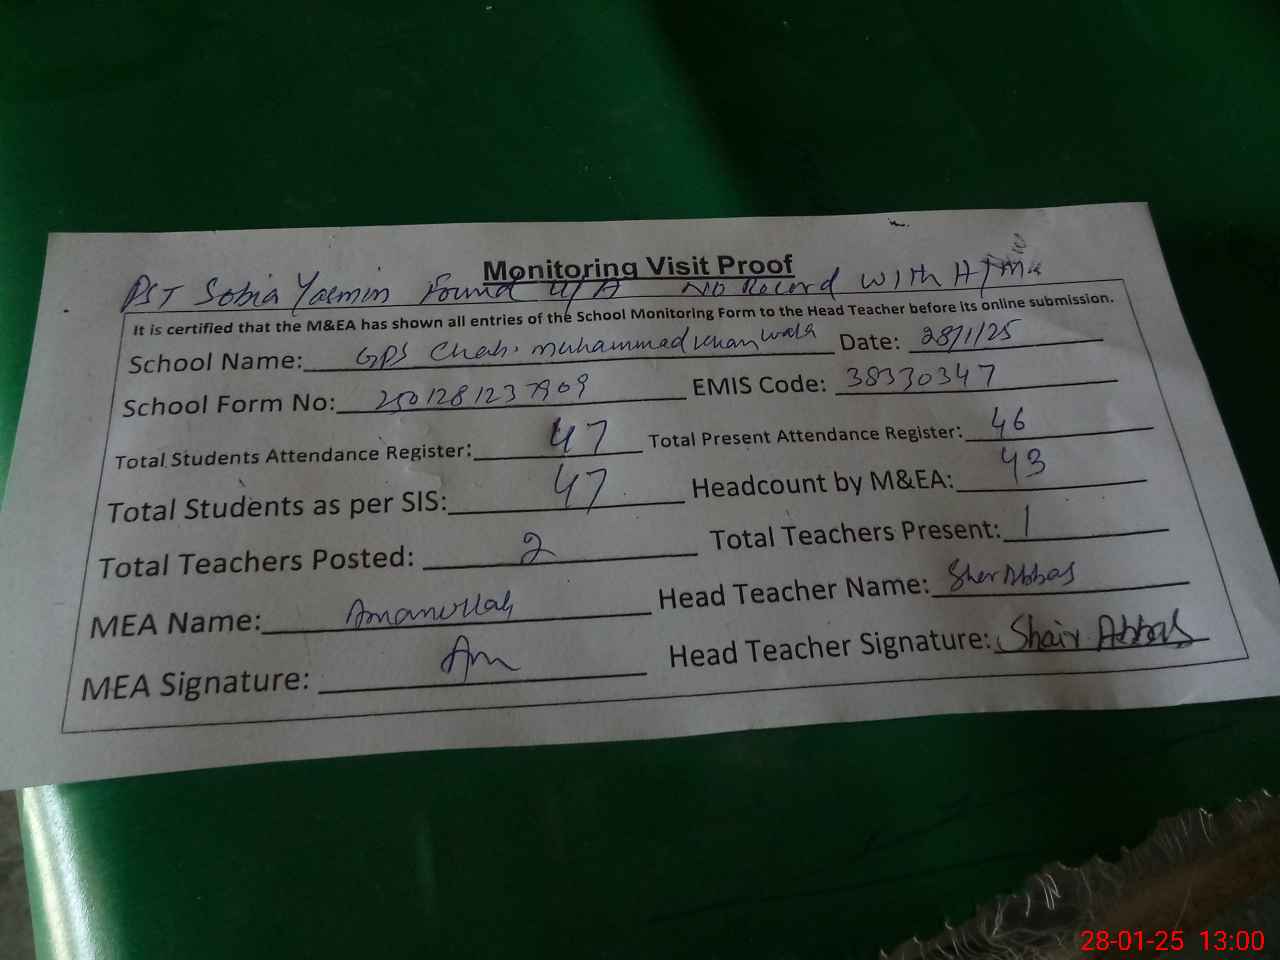 Monitoring Visit Proof
PST Sobia Yasmin Found U/A No Record with H/M
It is certified that the M&EA has shown all entries of the School Monitoring Form to the Head Teacher before its online submission.
School Name: GPS Chah. Muhammad Khan wala Date: 28/1/25
School Form No: 2501281237909 EMIS Code: 38330347
Total Students Attendance Register: 47 Total Present Attendance Register: 46
Total Students as per SIS: 47 Headcount by M&EA: 43
Total Teachers Posted: 2 Total Teachers Present: 1
MEA Name: Amanullah Head Teacher Name: Sher Abbas
MEA Signature: Am Head Teacher Signature: Shair Abbas
28-01-25 13:00